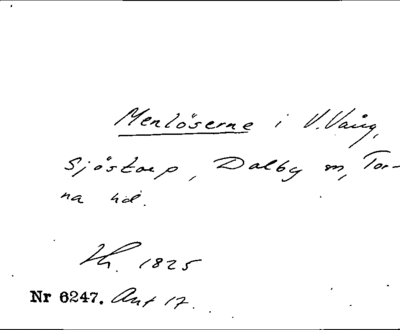 Menlöserne i V. Vång,
Sjöstorp, Dalby m, Tor-
na hd.
Hh. 1825
Nr 6247. Ant 17.